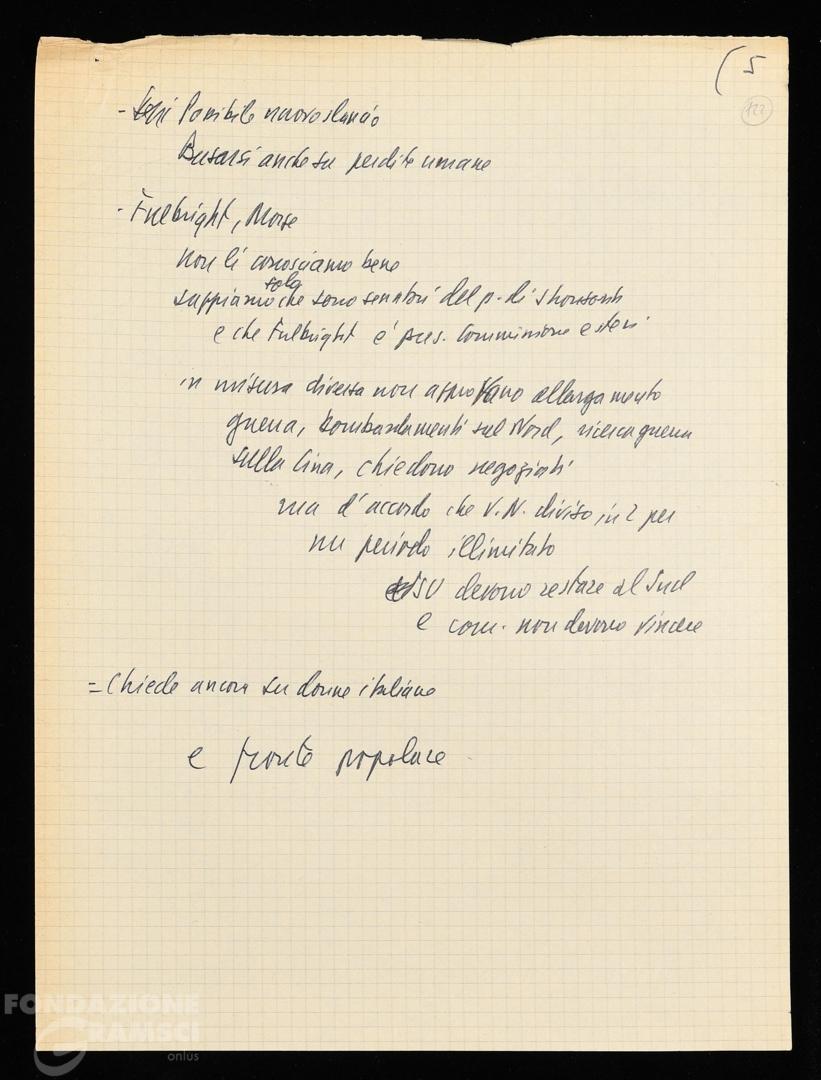 ( 5
122
- Possibile nuovo slancio
Basarsi anche su perdite umane
- Fulbright, Morse
non li conosciamo bene
solo
sappiamo che sono senatori del p. di Johnson
e che Fulbright è pres. Commissione esteri
in misura diversa non approvano allargamento
guerra, bombardamenti sul Nord, ricerca guerra
sulla Cina, chiedono negoziati
ma d'accordo che V.N. diviso in 2 per
un periodo illimitato
SU devono restare al Sud
e com. non devono vincere
= Chiede ancora su donne italiane
e fronte popolare
FONDAZIONE
GRAMSCI
onlus